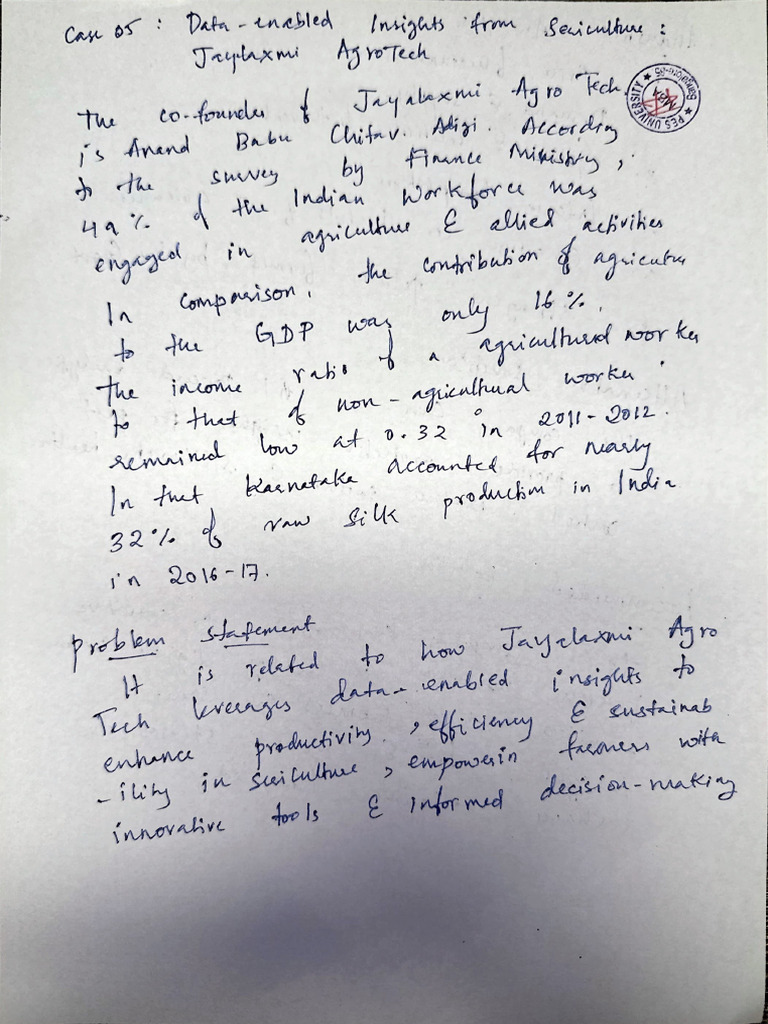 Case 05 : Data-enabled Insights from Sericulture :
Jaylaxmi AgroTech
PES UNIVERSITY
MBA
Bangalore-85
The co-founder of Jayalaxmi Agro Tech
is Anand Babu Chitav Adigi. According
to the survey by Finance Ministry,
49% of the Indian workforce was
engaged in agriculture & allied activities
In comparison, the contribution of agricultu
to the GDP was only 16%.
The income ratio of a agricultural worker
to that of non-agricultural worker
remained low at 0.32 in 2011-2012.
In that Karnataka accounted for nearly
32% of raw silk production in India
in 2016-17.
Problem statement
It is related to how Jayalaxmi Agro
Tech leverages data-enabled insights to
enhance productivity, efficiency & sustainab
-ility in sericulture, empowerin farmers with
innovative tools & informed decision-making